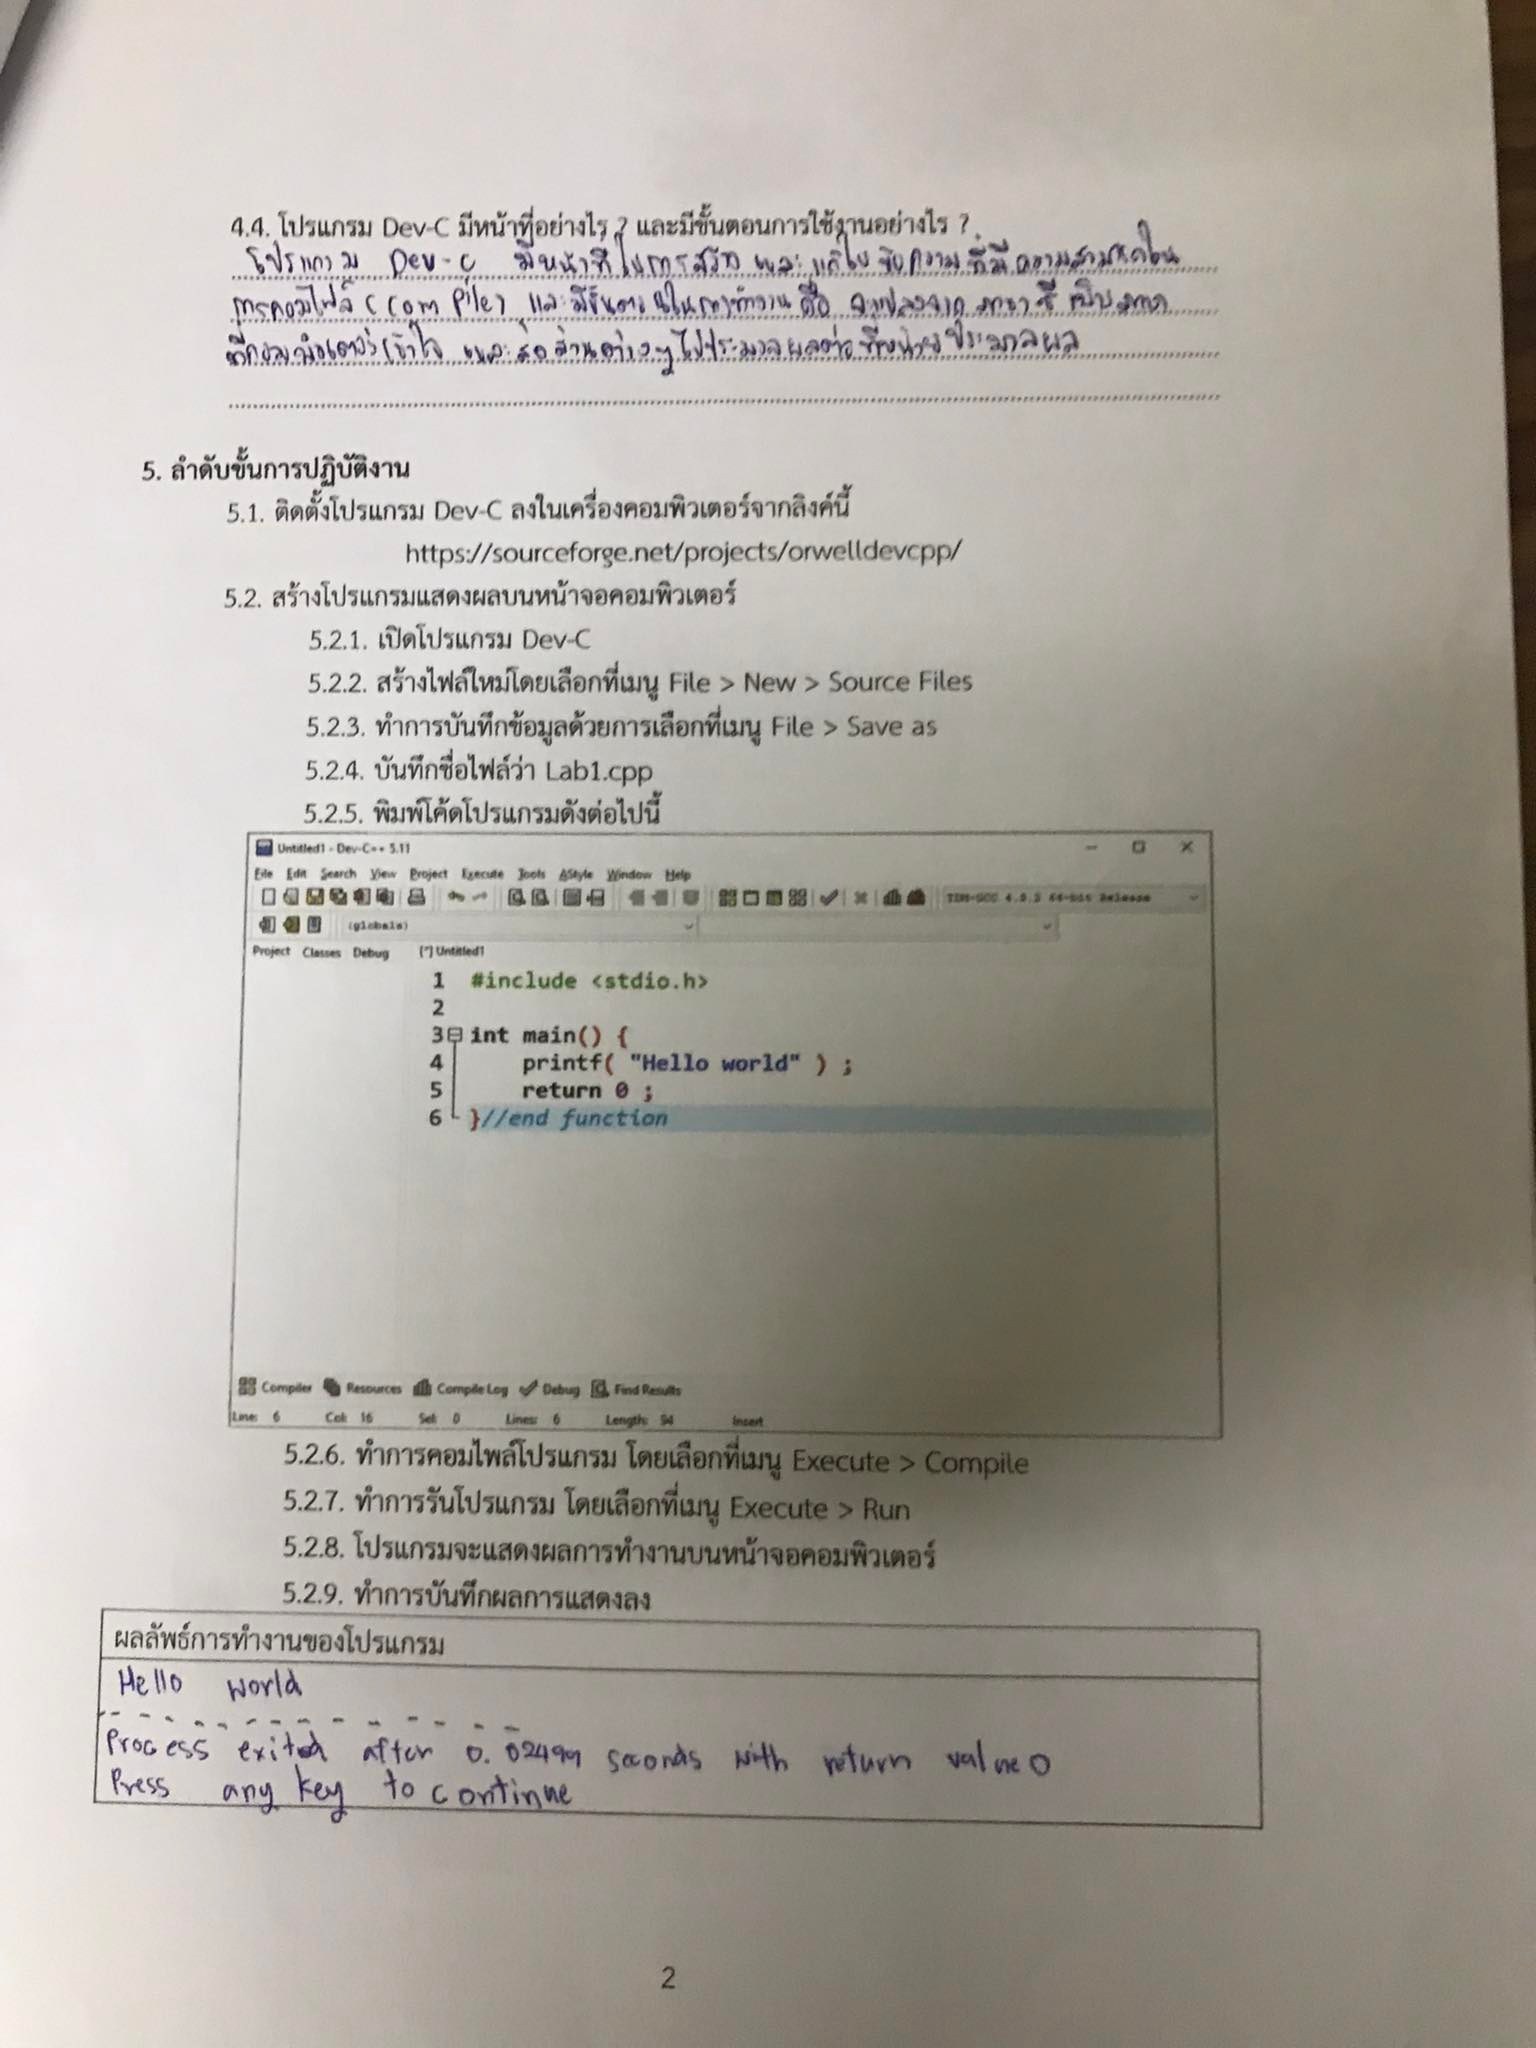 4.4. โปรแกรม Dev-C มีหน้าที่อย่างไร ? และมีขั้นตอนการใช้งานอย่างไร ?
โปรแกรม Dev-C มีหน้าที่ในการสร้าง และ แก้ไข ข้อความ ที่มี ความสามารถใน
การคอมไฟล์ (Com Pile) และมีขั้นตอนในการทำงาน คือ จะแปลงจาก ภาษา ซี เป็นภาษา
ที่คอมพิวเตอร์เข้าใจ และส่ง ต่างๆ ไปประมวลผลต่อ ที่หน่วยประมวลผล
5. ลำดับขั้นการปฏิบัติงาน
5.1. ติดตั้งโปรแกรม Dev-C ลงในเครื่องคอมพิวเตอร์จากลิงค์นี้
https://sourceforge.net/projects/orwelldevcpp/
5.2. สร้างโปรแกรมแสดงผลบนหน้าจอคอมพิวเตอร์
5.2.1. เปิดโปรแกรม Dev-C
5.2.2. สร้างไฟล์ใหม่โดยเลือกที่เมนู File > New > Source Files
5.2.3. ทำการบันทึกข้อมูลด้วยการเลือกที่เมนู File > Save as
5.2.4. บันทึกชื่อไฟล์ว่า Lab1.cpp
5.2.5. พิมพ์โค้ดโปรแกรมดังต่อไปนี้
Untitled1 - Dev-C++ 5.11
File Edit Search View Project Execute Tools AStyle Window Help
TDM-GCC 4.9.2 64-bit Release
(globals)
Project Classes Debug [*] Untitled1
1 #include <stdio.h>
2
3 int main() {
4 printf( "Hello world" ) ;
5 return 0 ;
6 }//end function
Compiler Resources Compile Log Debug Find Results
Line: 6 Col: 16 Sel: 0 Lines: 6 Length: 94 Insert
5.2.6. ทำการคอมไพล์โปรแกรม โดยเลือกที่เมนู Execute > Compile
5.2.7. ทำการรันโปรแกรม โดยเลือกที่เมนู Execute > Run
5.2.8. โปรแกรมจะแสดงผลการทำงานบนหน้าจอคอมพิวเตอร์
5.2.9. ทำการบันทึกผลการแสดงลง
ผลลัพธ์การทำงานของโปรแกรม
Hello world
- - - - - - - - - - - - - - -
Process exited after 0.02499 seconds with return value 0
Press any key to continue
2